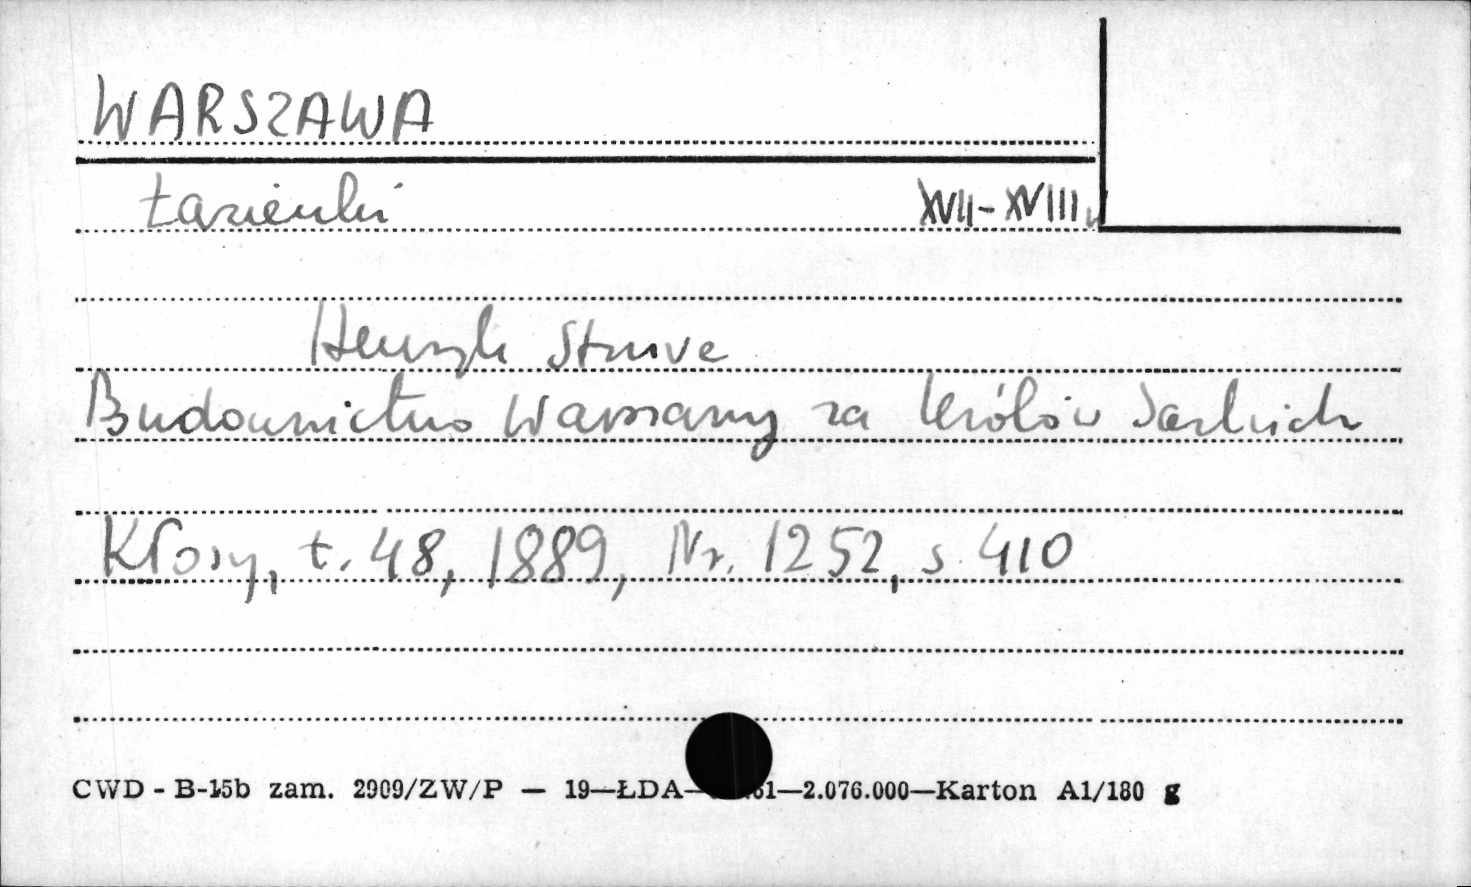 WARSZAWA
Łazienki XVII-XVIII w
Henryk Struve
Budownictwo Warszawy za królów Saskich
Kłosy, t. 48, 1889, Nr. 1252, s. 410
CWD - B-15b zam. 2909/ZW/P — 19—ŁDA— 61—2.076.000—Karton A1/180 g